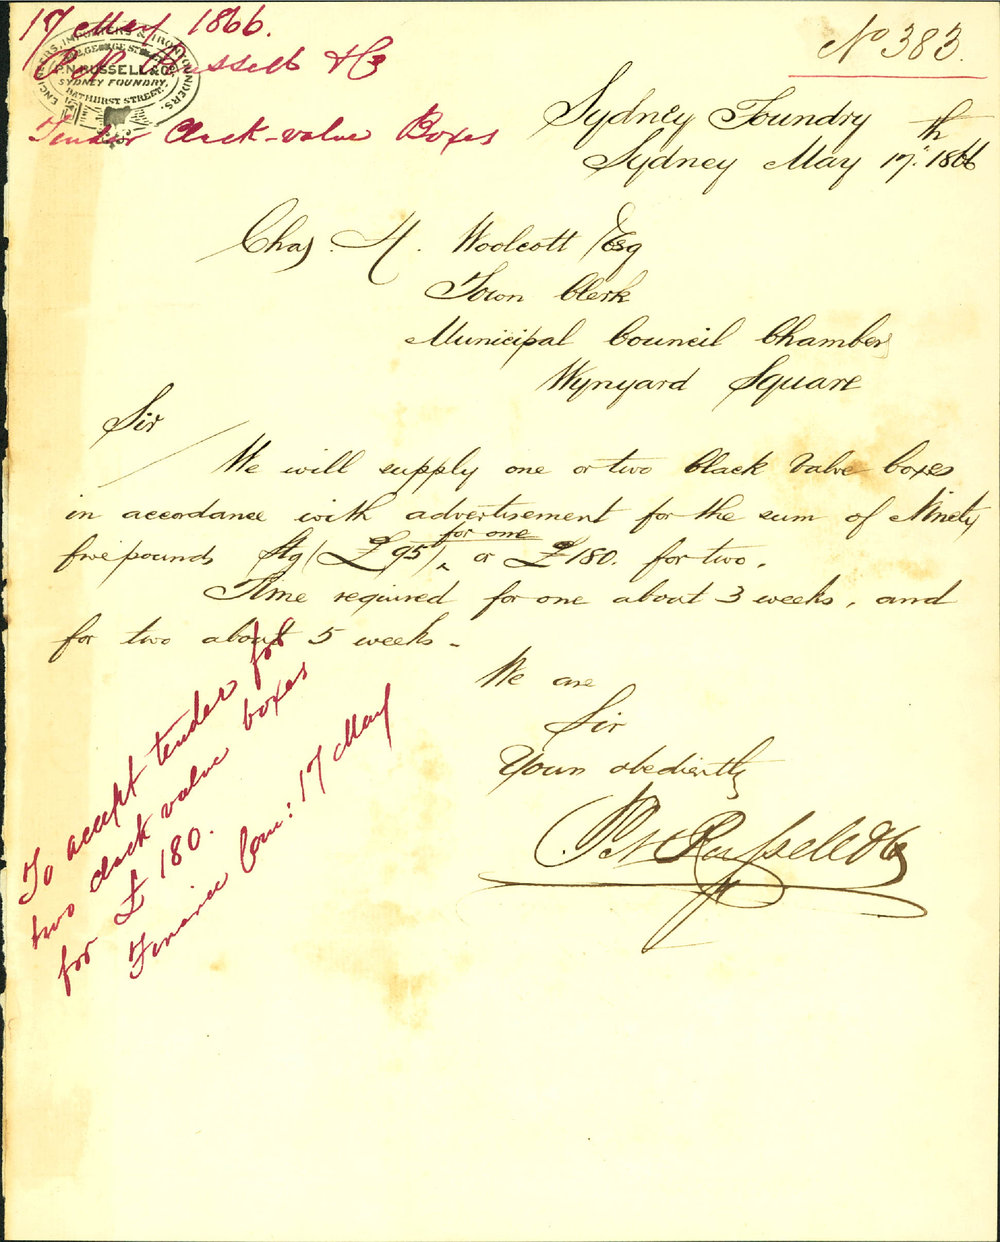 17 May 1866.
P. N. Russell & Co
Tender Clack-valve Boxes
ENGINEERS, IMPORTERS & IRONFOUNDERS.
GEORGE ST.
P.N. RUSSELL & Co
SYDNEY FOUNDRY,
BATHURST STREET.
No 383.
Sydney Foundry
Sydney May 17th. 1866
Chas. H. Woolcott Esq
Town Clerk
Municipal Council Chambers
Wynyard Square
Sir
We will supply one or two clack valve boxes
in accordance with advertisement for the sum of Ninety
for one
five pounds Stg (£95), or £180. for two.
Time required for one about 3 weeks, and
for two about 5 weeks.
We are
Sir
Yours obediently
P N Russell & Co
To accept tender for
two clack valve boxes
for £180.
Finance Com: 17 May